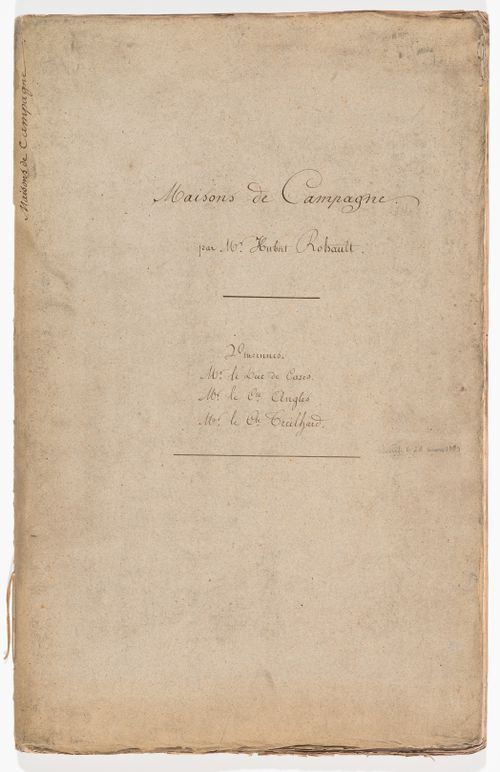 Maisons de Campagne
Maisons de Campagne.
par Mr. Hubert Rohault.
Vincennes.
Mr. le Duc de Cazes.
Mr. le Cte Anglès
Mr. le Cte Treilhard.